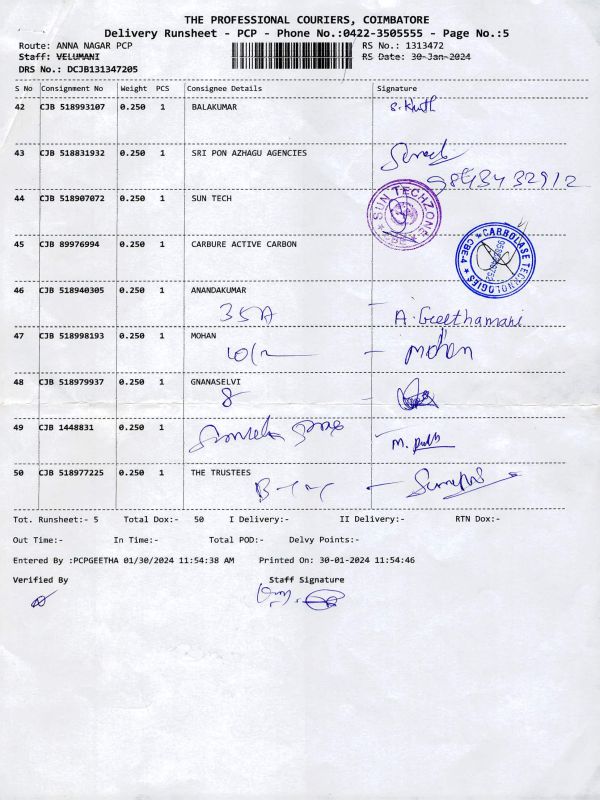 THE PROFESSIONAL COURIERS, COIMBATORE
Delivery Runsheet - PCP - Phone No.:0422-3505555 - Page No.:5
Route: ANNA NAGAR PCP RS No.: 1313472
Staff: VELUMANI RS Date: 30-Jan-2024
DRS No.: DCJB131347205
S No Consignment No Weight PCS Consignee Details Signature
42 CJB 518993107 0.250 1 BALAKUMAR
43 CJB 518831932 0.250 1 SRI PON AZHAGU AGENCIES
9843432912
44 CJB 518907072 0.250 1 SUN TECH
SUN TECHZONE
45 CJB 89976994 0.250 1 CARBURE ACTIVE CARBON
CARBOLASE TECHNOLOGIES CBE-4
46 CJB 518940305 0.250 1 ANANDAKUMAR
35A A. Geethamani
47 CJB 518998193 0.250 1 MOHAN
- mohan
48 CJB 518979937 0.250 1 GNANASELVI
8
49 CJB 1448831 0.250 1
50 CJB 518977225 0.250 1 THE TRUSTEES
Tot. Runsheet:- 5 Total Dox:- 50 I Delivery:- II Delivery:- RTN Dox:-
Out Time:- In Time:- Total POD:- Delvy Points:-
Entered By :PCPGEETHA 01/30/2024 11:54:38 AM Printed On: 30-01-2024 11:54:46
Verified By Staff Signature